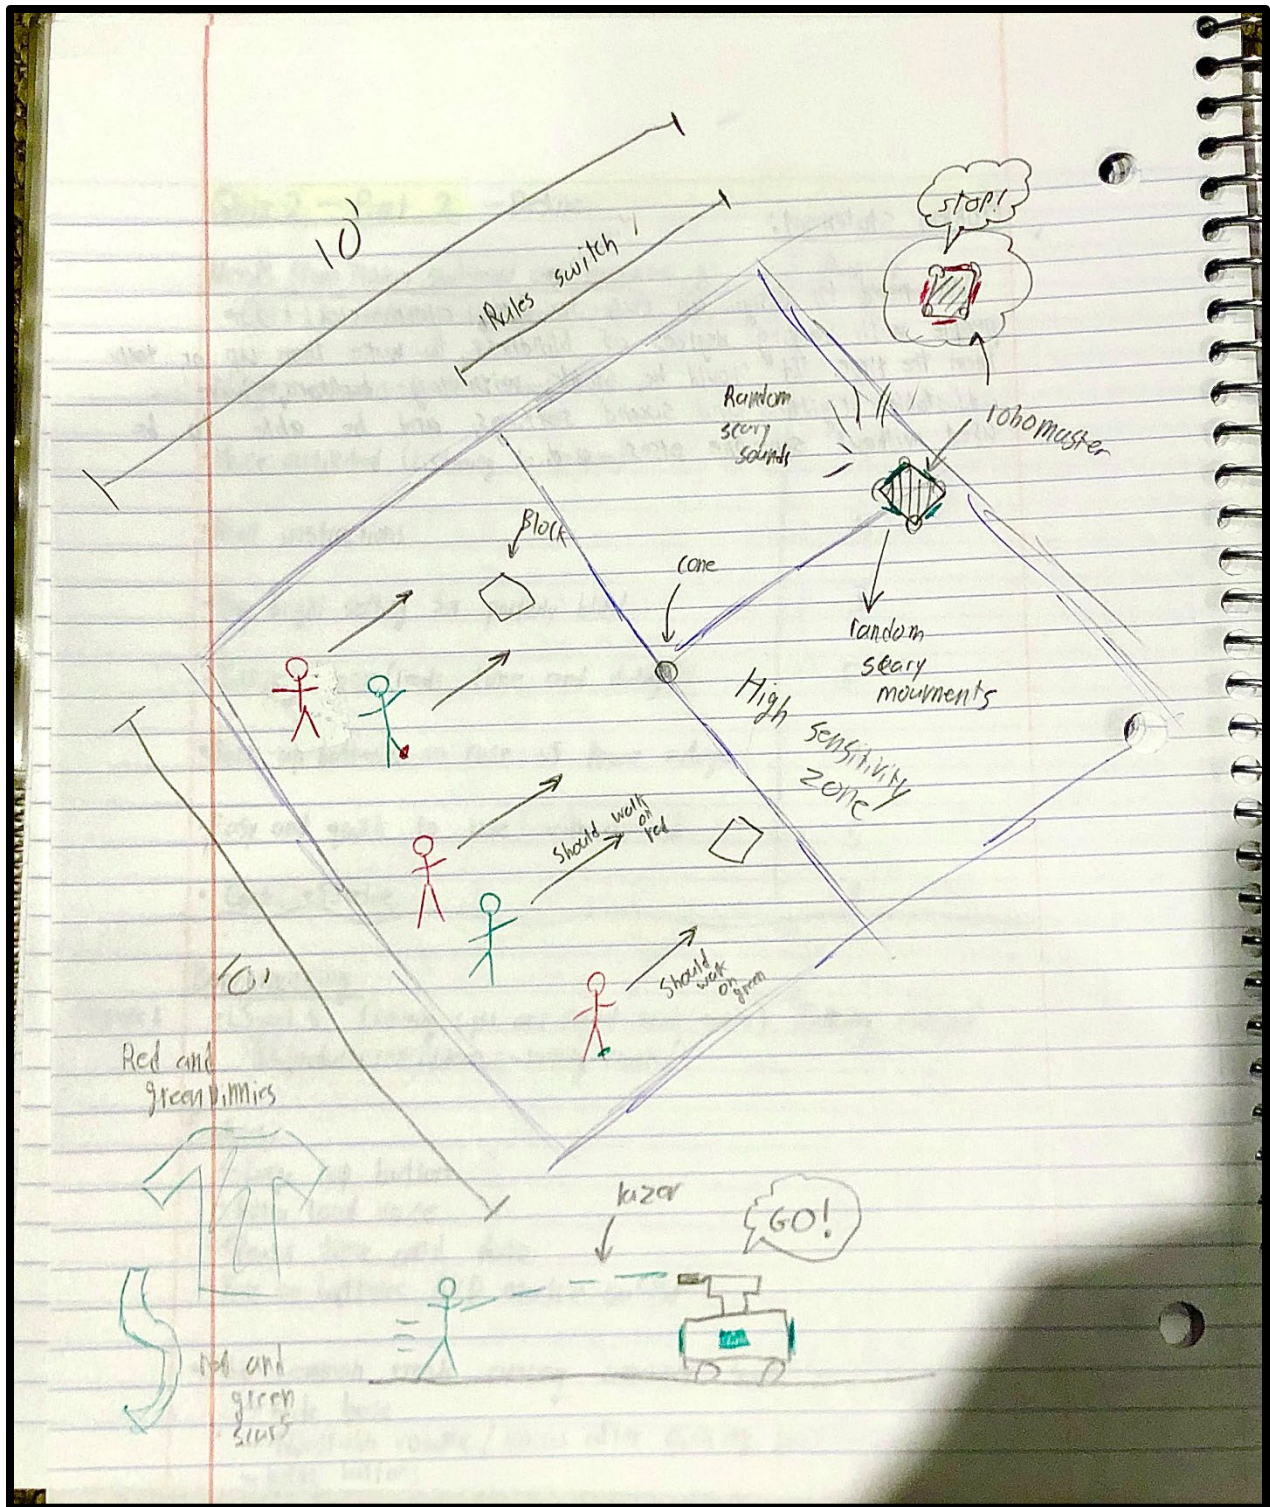 10'
Rules switch
stop!
Random
scary
sounds
robomaster
Block
cone
random
scary
mourments
High
sensitivity
zone
should walk
on
red
should
walk
on
green
10'
Red and
green pinnies
lazor
GO!
red and
green